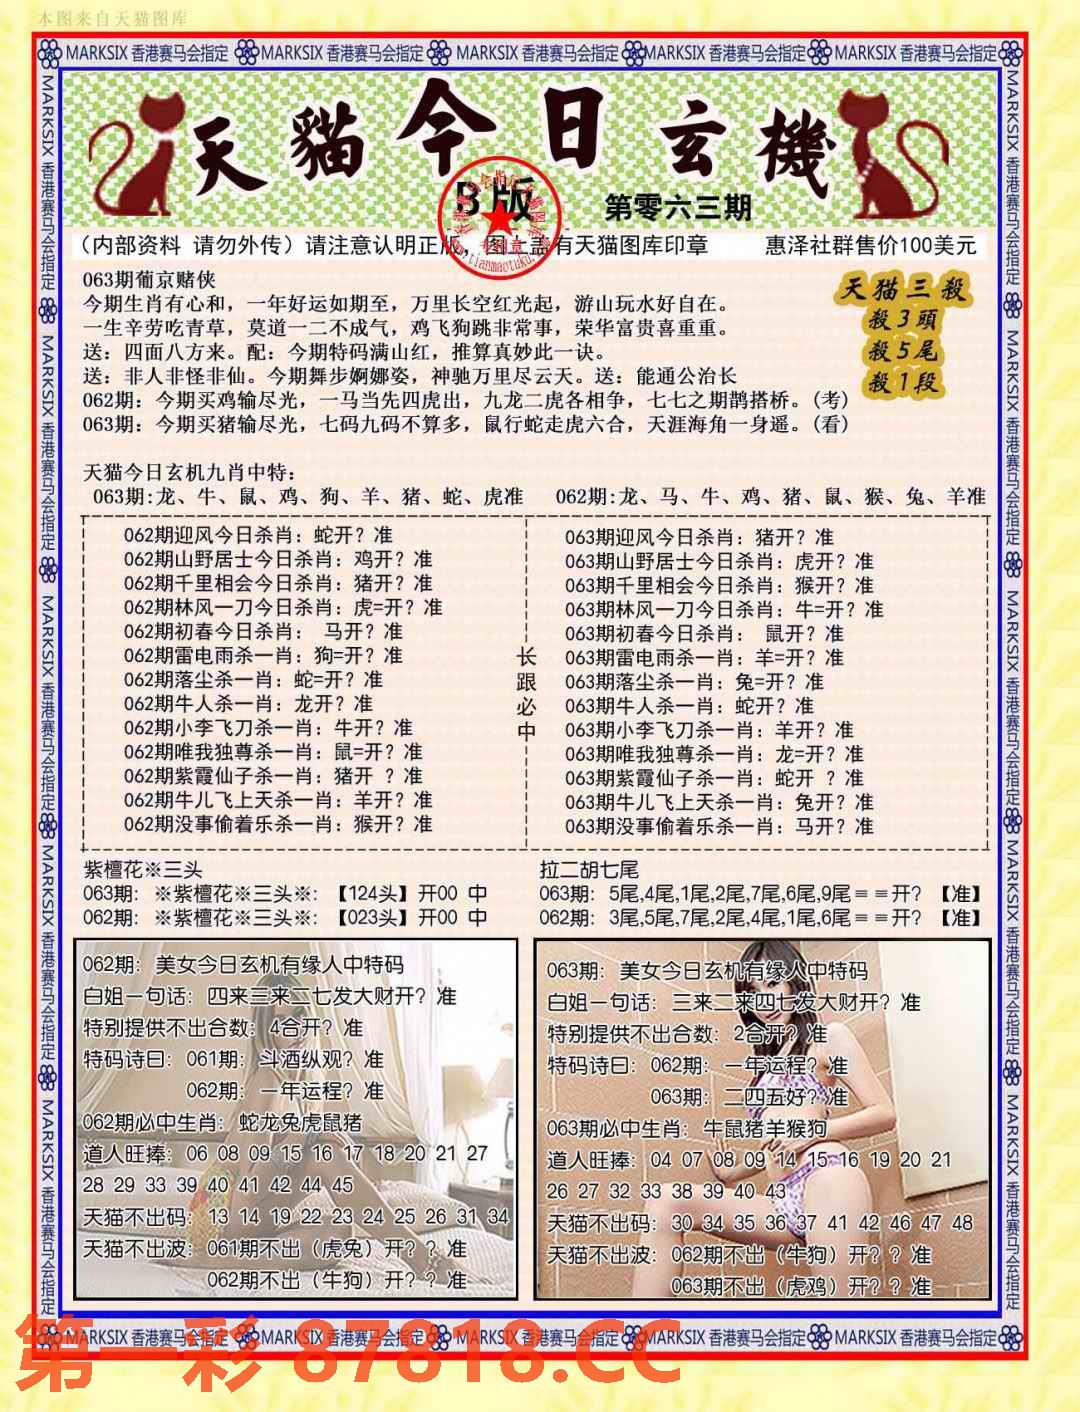 本图来自天猫图库
MARKSIX 香港赛马会指定 MARKSIX 香港赛马会指定 MARKSIX 香港赛马会指定 MARKSIX 香港赛马会指定 MARKSIX 香港赛马会指定
天貓今日玄機
B版
第零六三期
(内部资料 请勿外传) 请注意认明正版，图上盖有天猫图库印章 惠泽社群售价100美元
www.tianmaotuku.
063期葡京赌侠
今期生肖有心和，一年好运如期至，万里长空红光起，游山玩水好自在。
一生辛劳吃青草，莫道一二不成气，鸡飞狗跳非常事，荣华富贵喜重重。
送：四面八方来。配：今期特码满山红，推算真妙此一诀。
送：非人非怪非仙。今期舞步婀娜姿，神驰万里尽云天。送：能通公治长
062期：今期买鸡输尽光，一马当先四虎出，九龙二虎各相争，七七之期鹊搭桥。(考)
063期：今期买猪输尽光，七码九码不算多，鼠行蛇走虎六合，天涯海角一身遥。(看)
天猫三殺
殺3頭
殺5尾
殺1段
天猫今日玄机九肖中特：
063期:龙、牛、鼠、鸡、狗、羊、猪、蛇、虎准 062期:龙、马、牛、鸡、猪、鼠、猴、兔、羊准
062期迎风今日杀肖：蛇开？准
062期山野居士今日杀肖：鸡开？准
062期千里相会今日杀肖：猪开？准
062期林风一刀今日杀肖：虎=开？准
062期初春今日杀肖： 马开？准
062期雷电雨杀一肖：狗=开？准
062期落尘杀一肖：蛇=开？准
062期牛人杀一肖：龙开？准
062期小李飞刀杀一肖：牛开？准
062期唯我独尊杀一肖：鼠=开？准
062期紫霞仙子杀一肖：猪开 ？准
062期牛儿飞上天杀一肖：羊开？准
062期没事偷着乐杀一肖：猴开？准
长跟必中
063期迎风今日杀肖：猪开？准
063期山野居士今日杀肖：虎开？准
063期千里相会今日杀肖：猴开？准
063期林风一刀今日杀肖：牛=开？准
063期初春今日杀肖： 鼠开？准
063期雷电雨杀一肖：羊=开？准
063期落尘杀一肖：兔=开？准
063期牛人杀一肖：蛇开？准
063期小李飞刀杀一肖：羊开？准
063期唯我独尊杀一肖：龙=开？准
063期紫霞仙子杀一肖：蛇开 ？准
063期牛儿飞上天杀一肖：兔开？准
063期没事偷着乐杀一肖：马开？准
紫檀花※三头
063期：※紫檀花※三头※：【124头】开00 中
062期：※紫檀花※三头※：【023头】开00 中
拉二胡七尾
063期：5尾,4尾,1尾,2尾,7尾,6尾,9尾==开？【准】
062期：3尾,5尾,7尾,2尾,4尾,1尾,6尾==开？【准】
062期：美女今日玄机有缘人中特码
白姐一句话：四来三来二七发大财开？准
特别提供不出合数：4合开？准
特码诗曰：061期：斗酒纵观？准
062期：一年运程？准
062期必中生肖：蛇龙兔虎鼠猪
道人旺捧：06 08 09 15 16 17 18 20 21 27
28 29 33 39 40 41 42 44 45
天猫不出码：13 14 19 22 23 24 25 26 31 34
天猫不出波：061期不出（虎兔）开？？准
062期不出（牛狗）开？？准
063期：美女今日玄机有缘人中特码
白姐一句话：三来二来四七发大财开？准
特别提供不出合数：2合开？准
特码诗曰：062期：一年运程？准
063期：二四五好？准
063期必中生肖：牛鼠猪羊猴狗
道人旺捧：04 07 08 09 14 15 16 19 20 21
26 27 32 33 38 39 40 43
天猫不出码：30 34 35 36 37 41 42 46 47 48
天猫不出波：062期不出（牛狗）开？？准
063期不出（虎鸡）开？？准
MARKSIX 香港赛马会指定 MARKSIX 香港赛马会指定 MARKSIX 香港赛马会指定 MARKSIX 香港赛马会指定 MARKSIX 香港赛马会指定
第一彩 87818.CC